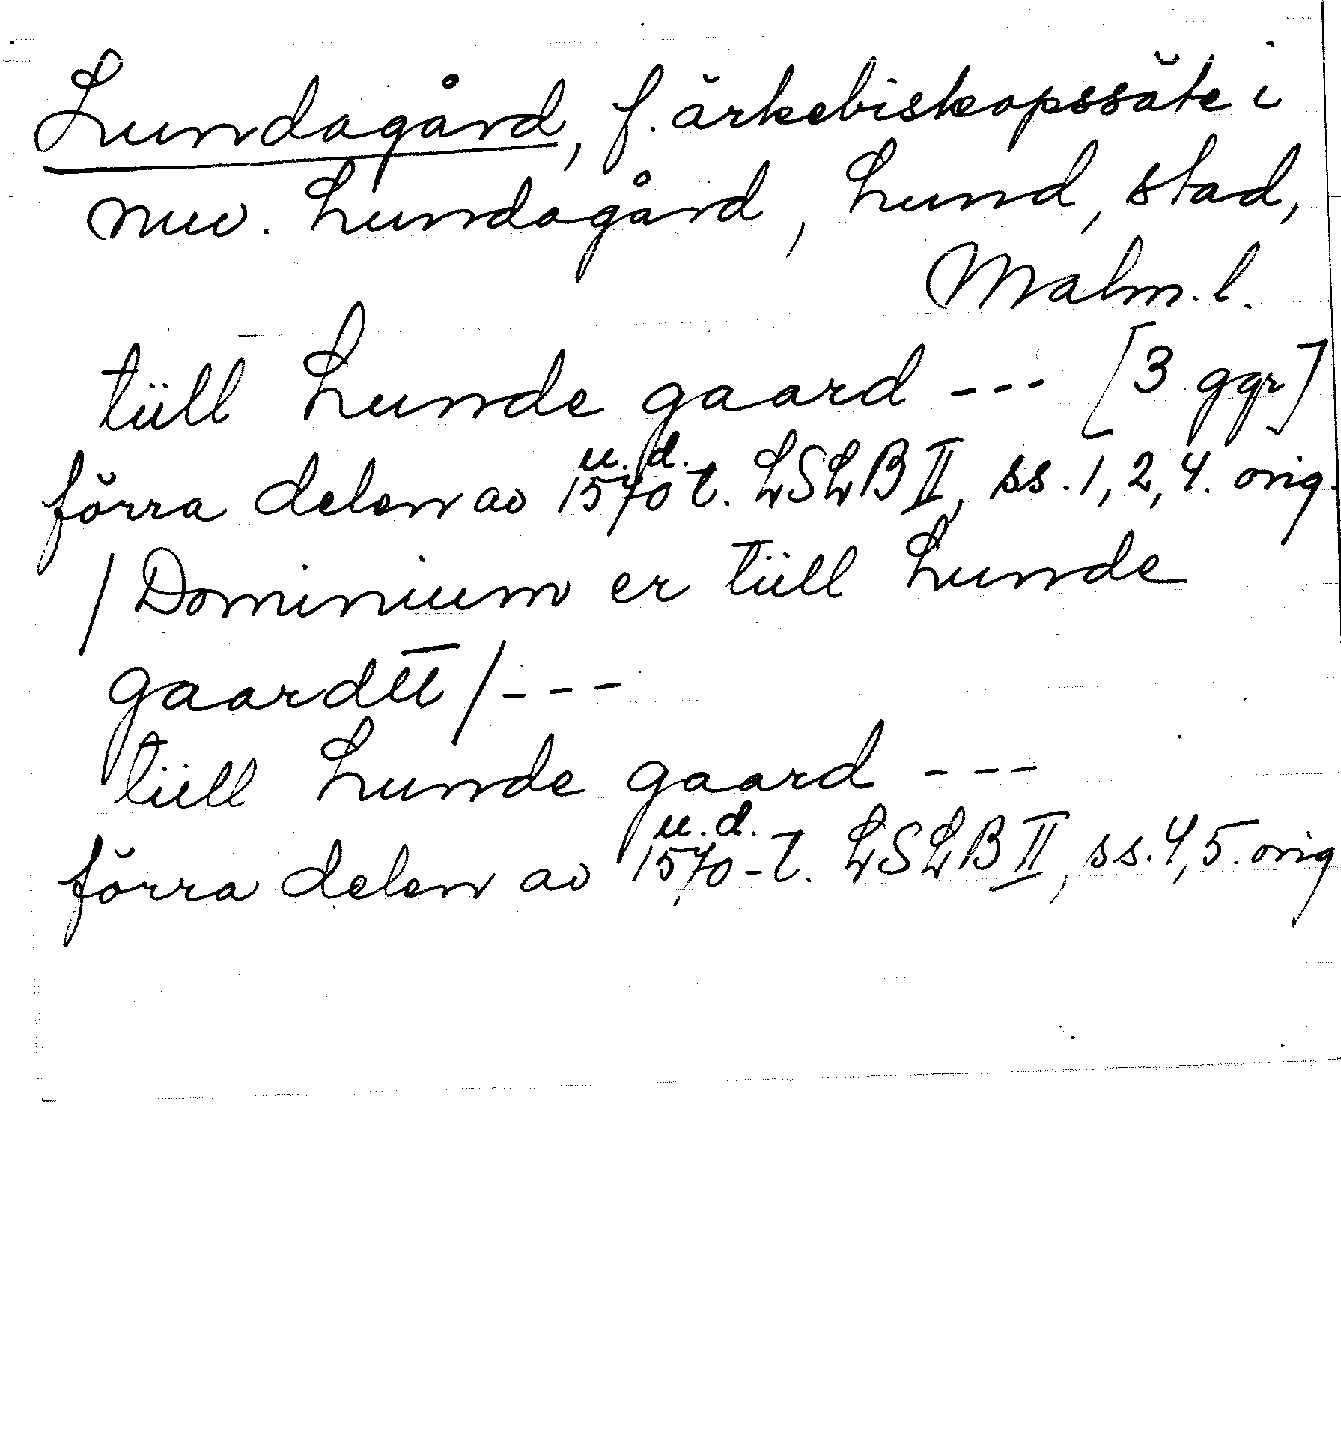 Lundagård, f. ärkebiskopssäte i
nuv. Lundagård, Lund, stad,
Malm. l.
tüll Lunde gaard --- [3 ggr]
u. d.
förra delen av 1570 t. LSLB II, ss. 1, 2, 4. orig.
/Dominium er tüll Lunde
gaardtt/---
tüll Lunde gaard ---
u. d.
förra delen av 1570-t. LSLB II, ss. 4, 5. orig